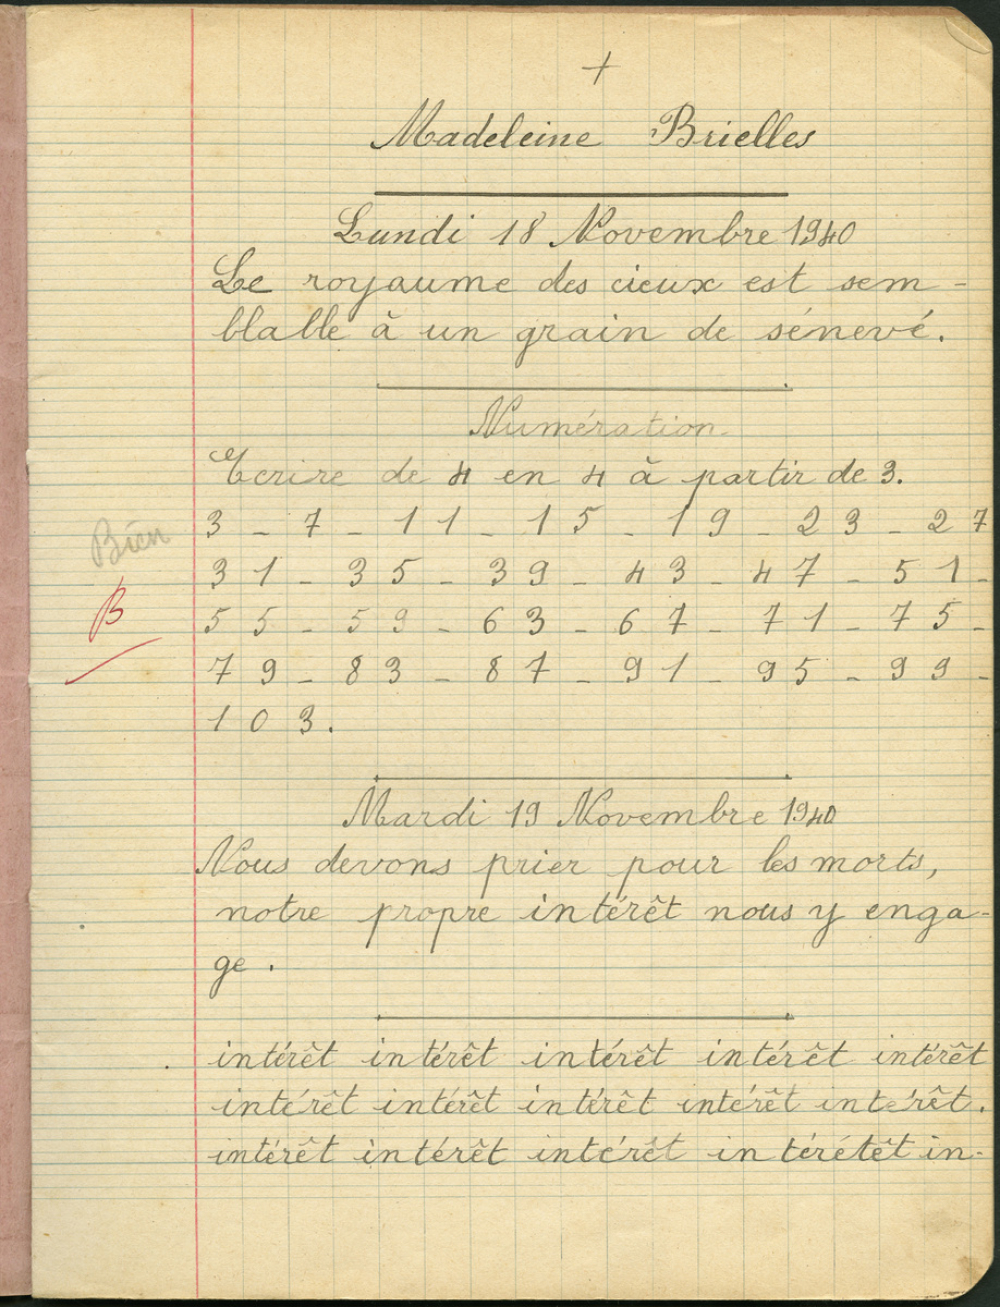 +
Madeleine Brielles
Lundi 18 Novembre 1940
Le royaume des cieux est sem-
blalle à un grain de sénevé.
Numération.
Ecrire de 4 en 4 à partir de 3.
3 - 7 - 11 - 15 - 19 - 23 - 27
Bien
31 - 35 - 39 - 43 - 47 - 51 -
B
55 - 59 - 63 - 67 - 71 - 75 -
79 - 83 - 87 - 91 - 95 - 99 -
103.
Mardi 19 Novembre 1940
Nous devons prier pour les morts,
notre propre intérêt nous y enga-
ge.
intérêt intérêt intérêt intérêt intérêt
intérêt intérêt intérêt intérêt intérêt.
intérêt intérêt intérêt intérétêt in-